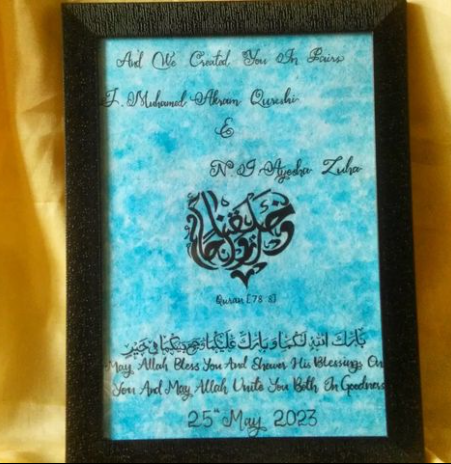 And We Created You In Pairs
J. Muhamad Akram Qureshi
&
N. I Ayesha Zuha
وخلقناكم أزواجا
Quran [78:8]
بَارَكَ اللهُ لَكُمَا وَبَارَكَ عَلَيْكُمَا وَجَمَعَ بَيْنَكُمَا فِي خَيْرٍ
May Allah Bless You And Shower His Blessings On
You And May Allah Unite You Both In Goodness
25th May 2023